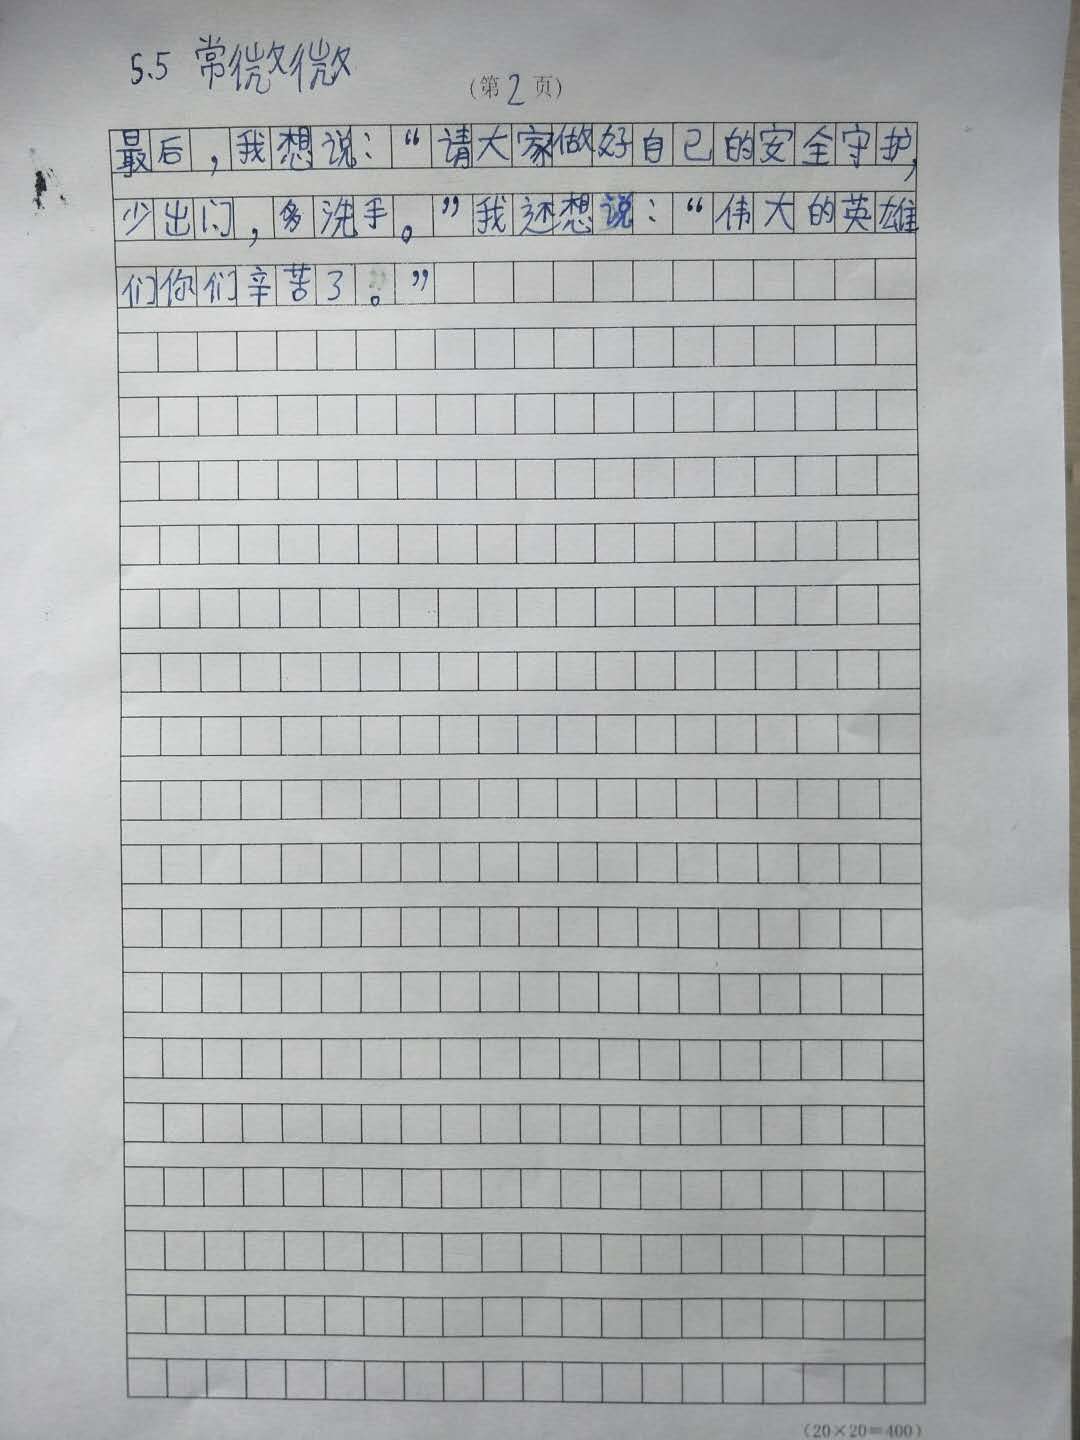 5.5 常微微
(第2页)
最后，我想说：“请大家做好自己的安全守护，
少出门，多洗手。”我还想说：“伟大的英雄
们你们辛苦了。”
(20×20=400)